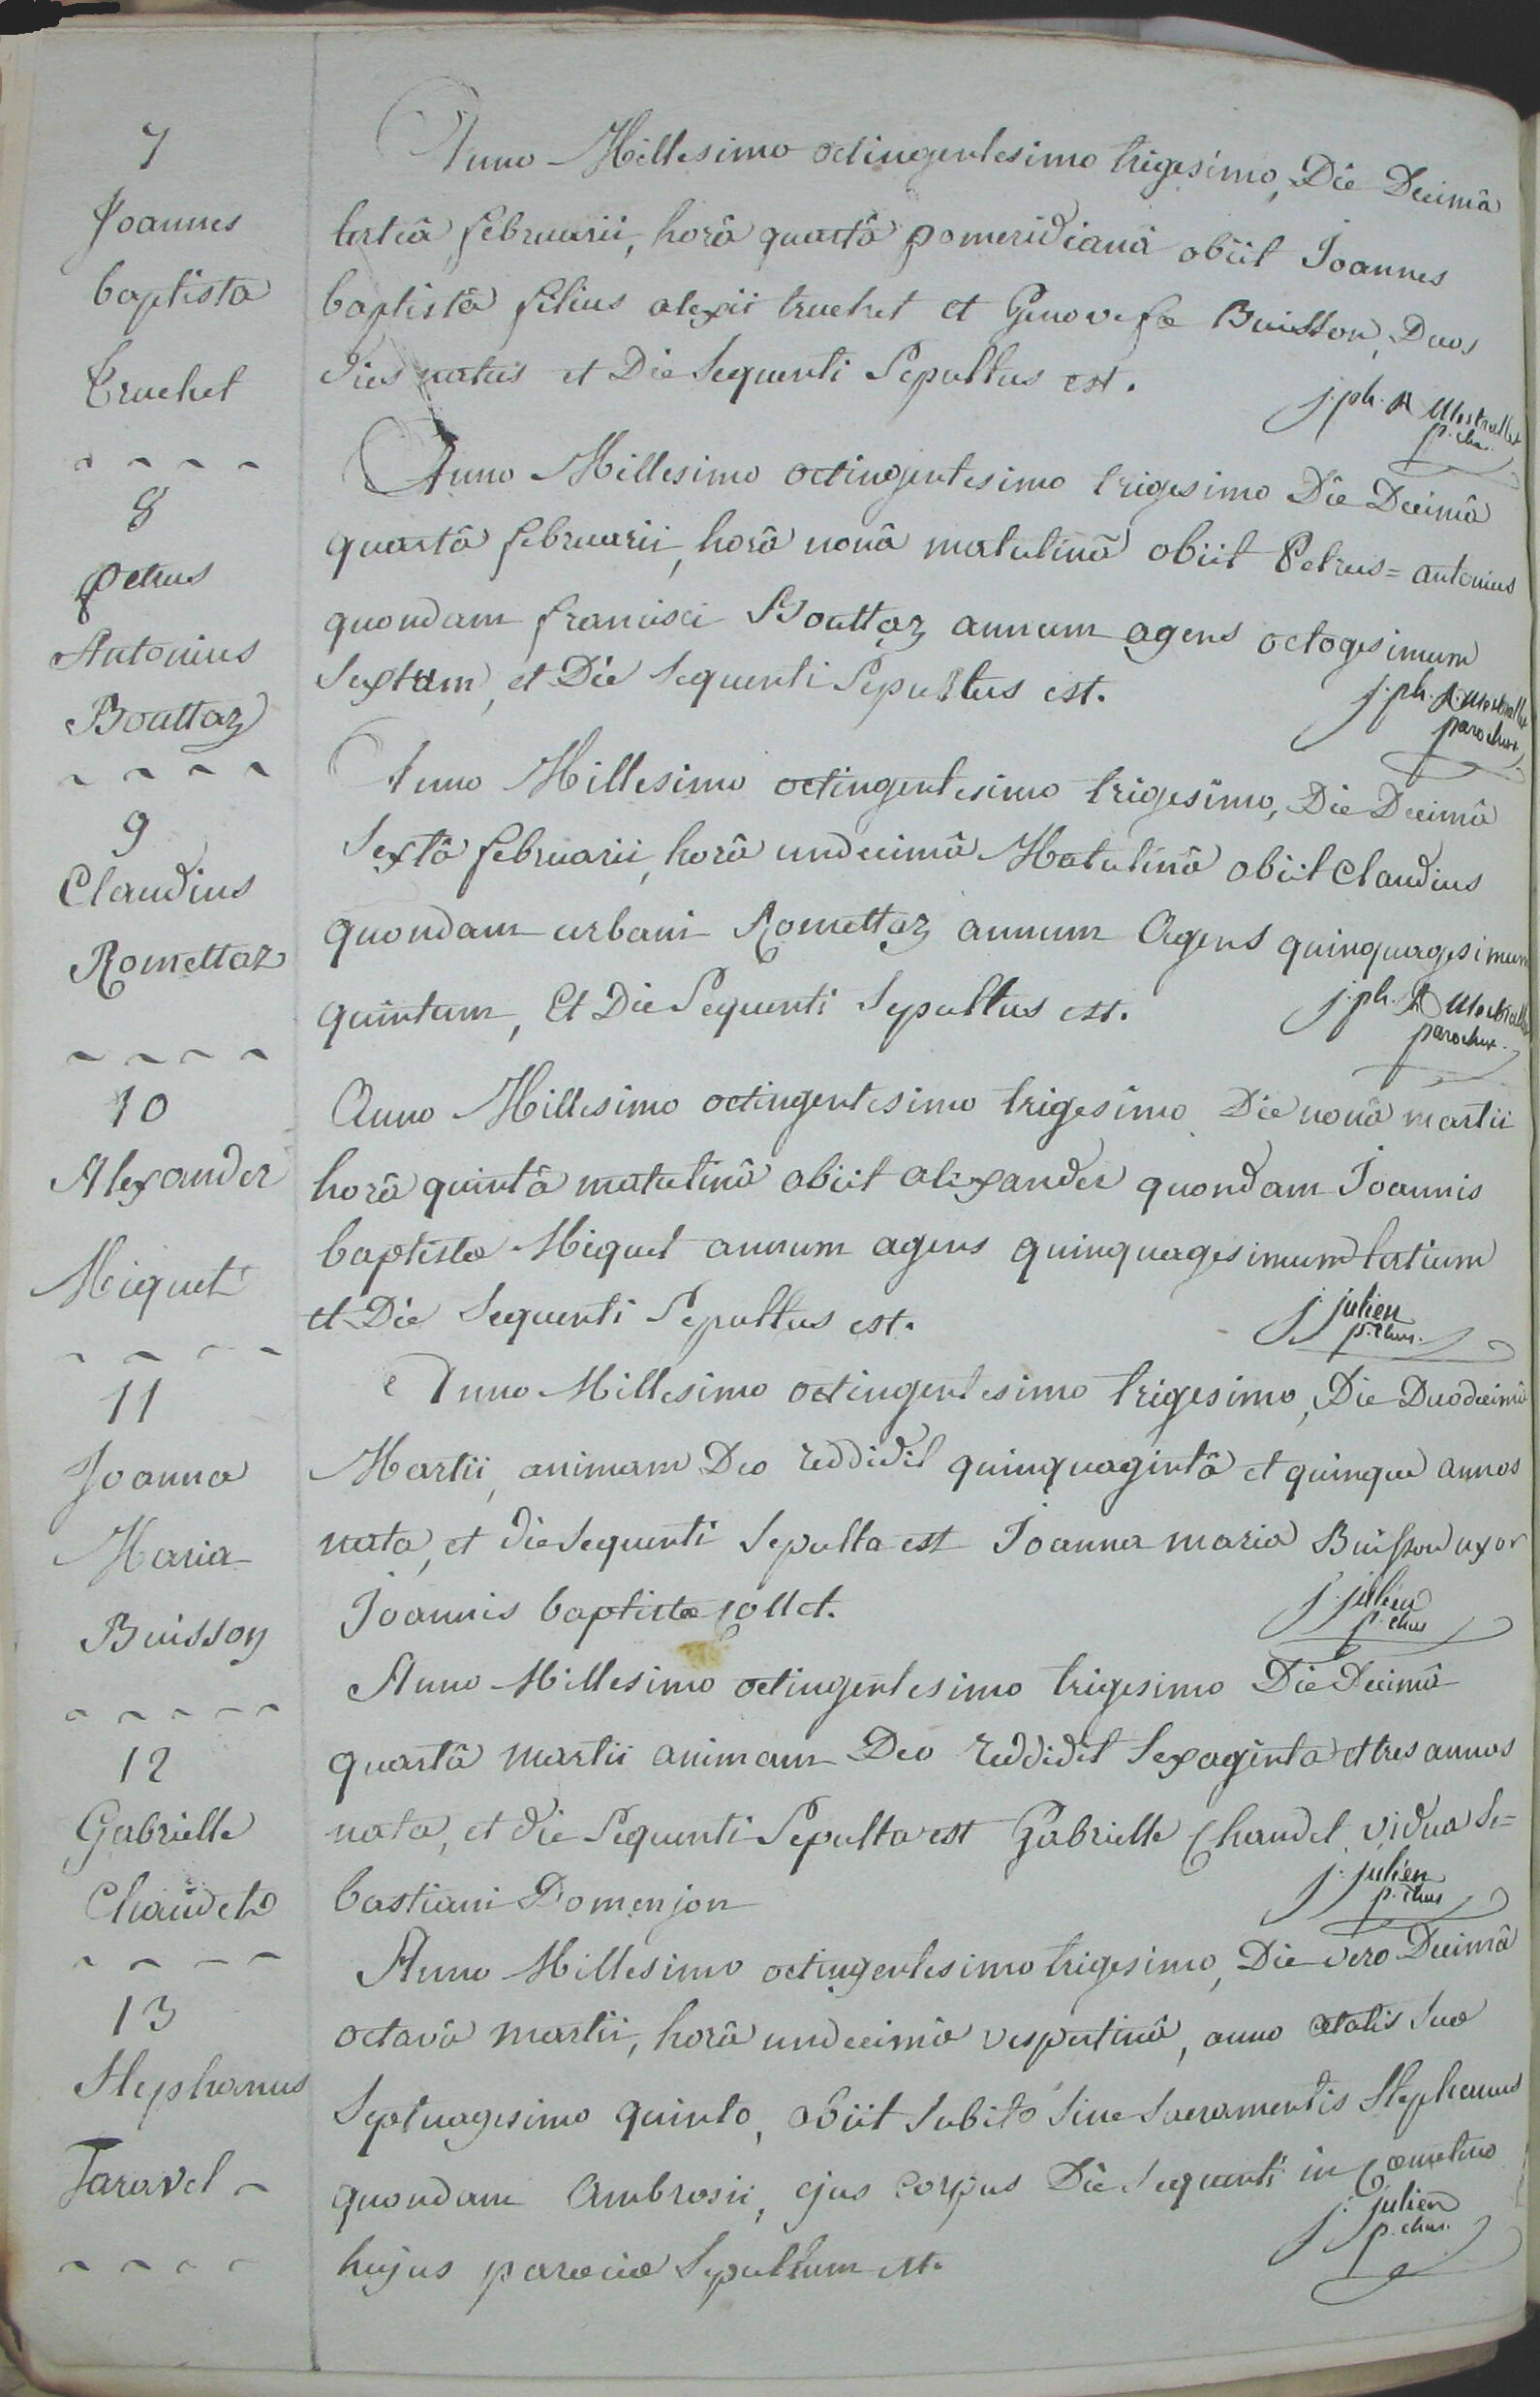 7
Joannes
baptista
Truchet
Anno Millesimo octingentesimo trigesimo, Die Decimâ
tertiâ februarii, horâ quartâ pomeridianâ obiit Joannes
baptista filius alexii truchet et Genovefæ Buisson, Duos
dies natus et Die Sequenti Sepultus est.
j. ph. A Mestrallet
p. chus.
8
petrus
Antonius
Bouttaz
Anno Millesimo octingentesimo trigesimo Die Decimâ
quartâ februarii, horâ nonâ matutinâ obiit Petrus= antonius
quondam francisci Bouttaz annum agens octogesimum
Sextum, et Die Sequenti Sepultus est.
j. ph. A. Mestrallet
parochus
9
Claudius
Romettaz
Anno Millesimo octingentesimo trigesimo, Die Decimâ
Sextâ februarii, horâ undecimâ Matutinâ obiit Claudius
quondam urbani Romettaz annum Agens quinquagesimum
quintum, Et Die Sequenti Sepultus est.
j. ph. A Mestrallet
parochus.
10
Alexander
Miquet
Anno Millesimo octingentesimo trigesimo Die nonâ martii
horâ quintâ matutinâ obiit alexander quondam Joannis
baptistæ Miquet annum agens quinquagesimum tertium
et Die Sequenti Sepultus est.
j julien
p. chus.
11
Joanna
Maria
Buisson
Anno Millesimo octingentesimo trigesimo, Die Duodecimâ
Martii, animam Deo reddidit quinquagintâ et quinque annos
nata, et die Sequenti Sepulta est Joanna maria Buisson uxor
Joannis baptistæ Collet.
j. julien
p. chus
12
Gabrielle
Chaudet
Anno Millesimo octingentesimo trigesimo Die Decimâ
quartâ martii animam Deo reddidit Sexaginta et tres annos
nata, et die Sequenti Sepulta est Gabrielle Chaudet vidua Se=
bastiani Domenjon
j. julien
p. chus
13
Stephanus
Taravel
Anno Millesimo octingentesimo trigesimo, Die vero Decimâ
octavâ martii, horâ undecimâ vespertinâ, anno ætatis Suæ
Septuagesimo quinto, obiit Subito Sine Sacramentis Stephanus
quondam Ambrosii, ejus corpus Die Sequenti in Cœmeterio
hujus parœciæ Sepultum est.
j. julien
p. chus.